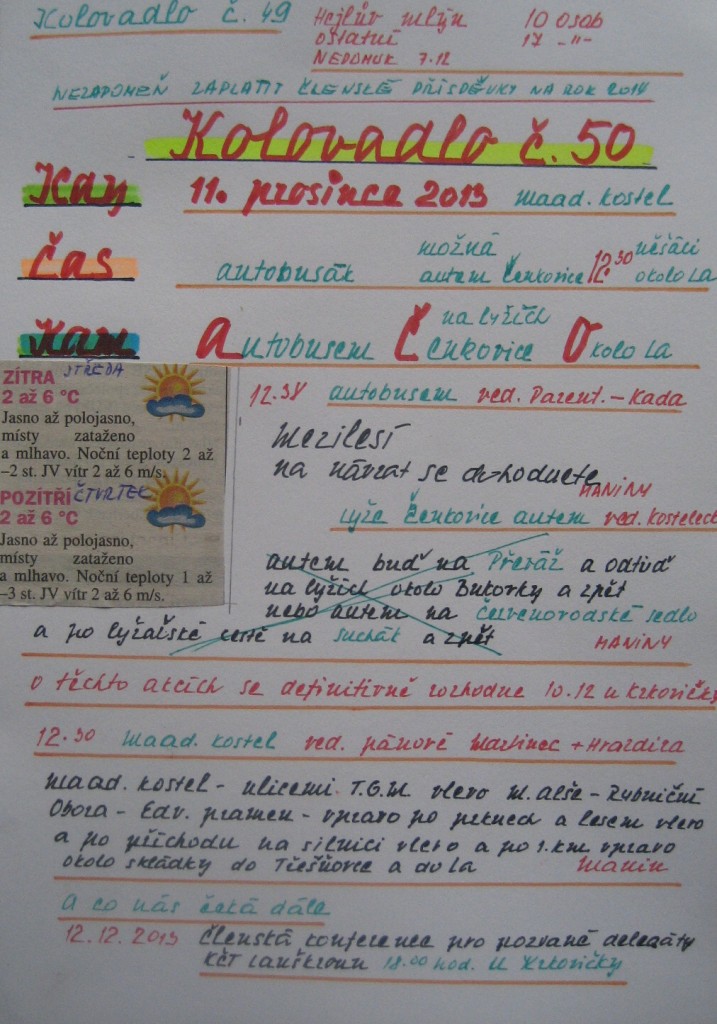 Kolovadlo č. 49
Hejlův mlýn 10 osob
ostatní 17 -"-
NEDOMUK 7.12
NEZAPOMEŇ ZAPLATIT ČLENSKÉ PŘÍSPĚVKY NA ROK 2014
Kolovadlo č. 50
Kdy 11. prosince 2013 maad. kostel
Čas autobusák možná autem Čenkovice 12 30 pěšáci okolo LA
Kam Autobusem na lyžích Čenkovice Okolo LA
ZÍTRA STŘEDA
2 až 6 °C
Jasno až polojasno,
místy zataženo
a mlhavo. Noční teploty 2 až
–2 st. JV vítr 2 až 6 m/s.
POZÍTŘÍ ČTVRTEK
2 až 6 °C
Jasno až polojasno,
místy zataženo
a mlhavo. Noční teploty 1 až
–3 st. JV vítr 2 až 6 m/s.
12.38 autobusem ved. Parent. – Kada
Mezilesí
na návrat se dohodnete
MANINY
Lyže Čenkovice autem ved. Kosteleck
autem buď na Převáž a odtud
na lyžích okolo Bukovky a zpět
nebo autem na Červenovodské sedlo
a po lyžařské cestě na suchák a zpět MANINY
o těchto akcích se definitivně rozhodne 10.12 u Krkovičky
12.30 maad. kostel ved. pánové Martinec + Hrazdira
maad. kostel - ulicemi T.G.M vlevo M. Alše - Rybniční
Obora - Edv. pramen - vpravo po a lesem vlevo
a po příchodu na silnici vlevo a po 1. km vpravo
okolo skládky do Třešňovce a do LA Manin
A co nás čeká dále
12.12.2013 Členská konference pro pozvané delegáty
KČT Lanškroun 18.00 hod. U Krkovičky